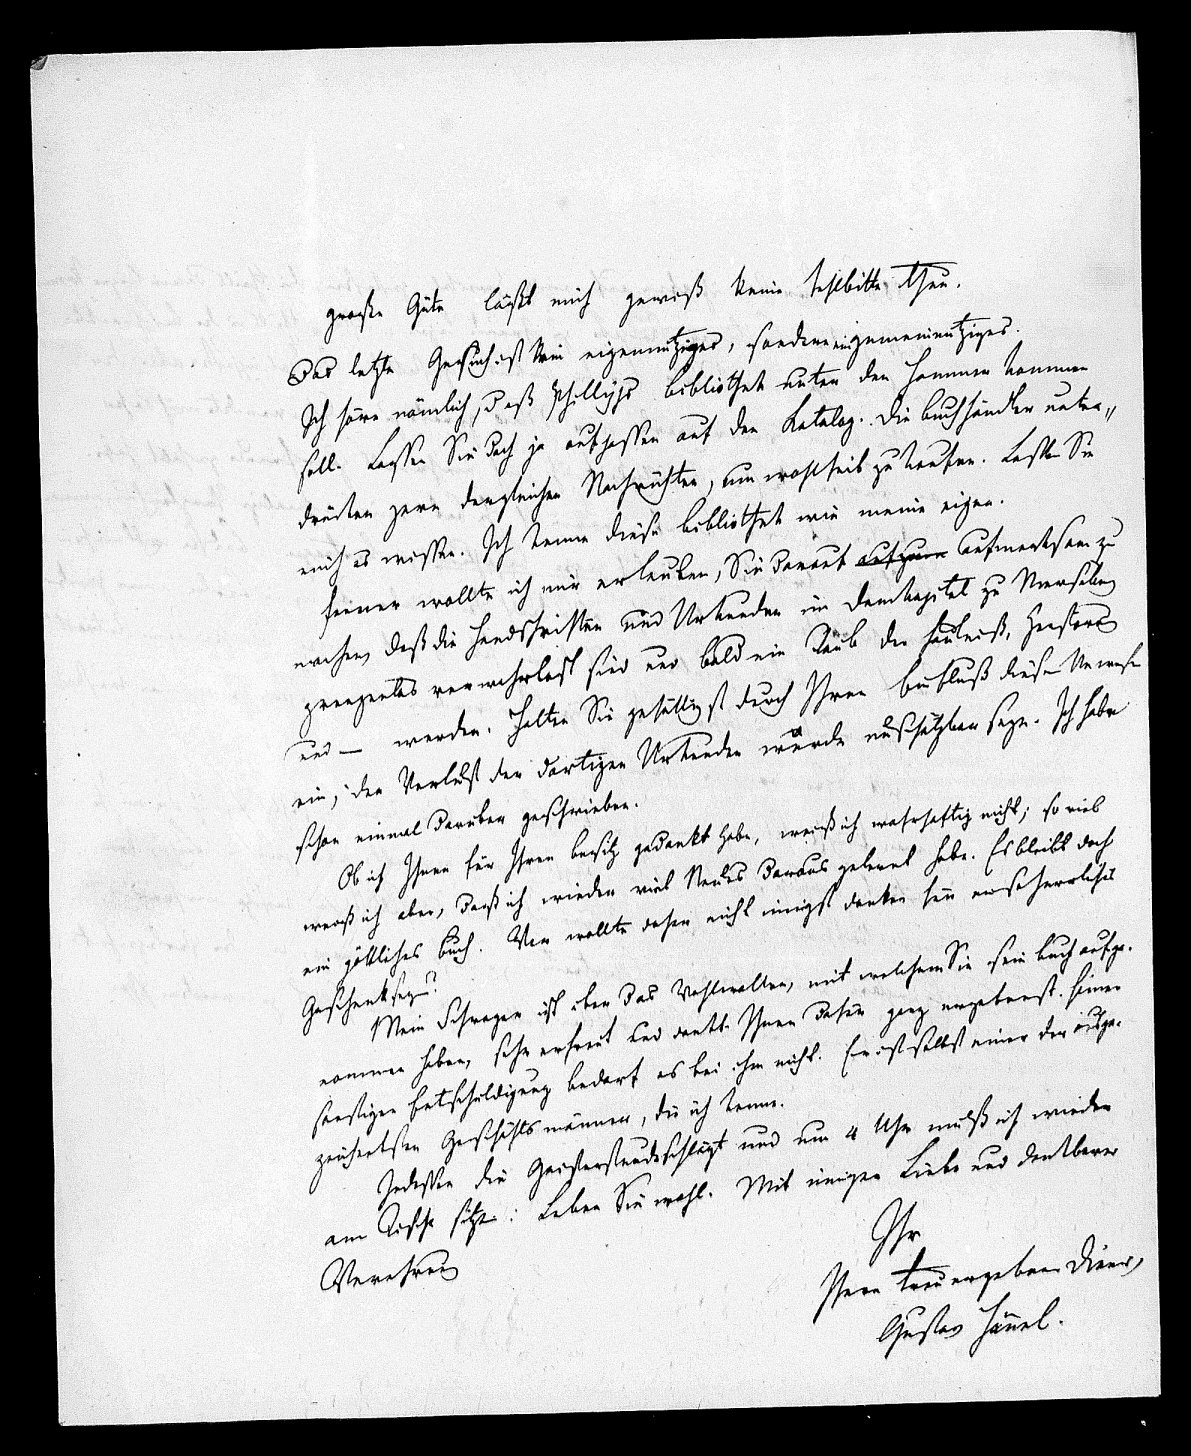 große Güte läßt mich gewiß keine Fehlbitte thun.
Das letzte Gesuch ist kein eigennütziges, sondern ein gemeinnütziges.
Ich höre nämlich, daß Phillipps Bibliothek unter den Hammer kommen
soll. Lassen Sie doch ja aufpassen auf den Katalog. Die Buchhändler unter-
drücken gern dergleichen Nachrichten, um wohlfeil zu kaufen. Lassen Sie
mich es wissen. Ich kenne diese Bibliothek wie meine eigene.
Ferner wollte ich mir erlauben, Sie darauf aufmerksam zu
machen, daß die Handschriften und Urkunden im Domkapitel zu Merseburg
grenzenlos verwahrlost sind und bald ein Raub der Fäulniß, Zerstörung
und — werden. Halten Sie gefälligst durch Ihren Einfluß diesem Unwesen
ein, der Verlust der dortigen Urkunden würde unschätzbar seyn. Ich habe
schon einmal darüber geschrieben.
Ob ich Ihnen für Ihren Besitz gedankt habe, weiß ich wahrhaftig nicht; so viel
weiß ich aber, daß ich wieder viel Neues daraus gelernt habe. Es bleibt doch
ein göttliches Buch. Wer wollte daher nicht innigst danken für ein so herrliches
Geschenk seyn?
Mein Schwager ist über das Wohlwollen, mit welchem Sie sein Buch aufge-
nommen haben, sehr erfreut und dankt Ihnen dafür ganz ergebenst. Keiner
sonstigen Entschuldigung bedarf es bei ihm nicht. Er ist selbst einer der ausge-
zeichnetsten Geschäftsmänner, die ich kenne.
Indessen die Geisterstunde schlägt und um 4 Uhr muß ich wieder
am Tische sitzen: Leben Sie wohl. Mit inniger Liebe und dankbarer
Verehrung
Ihr
Ihnen treu ergebener Diener,
Gustav Hänel.